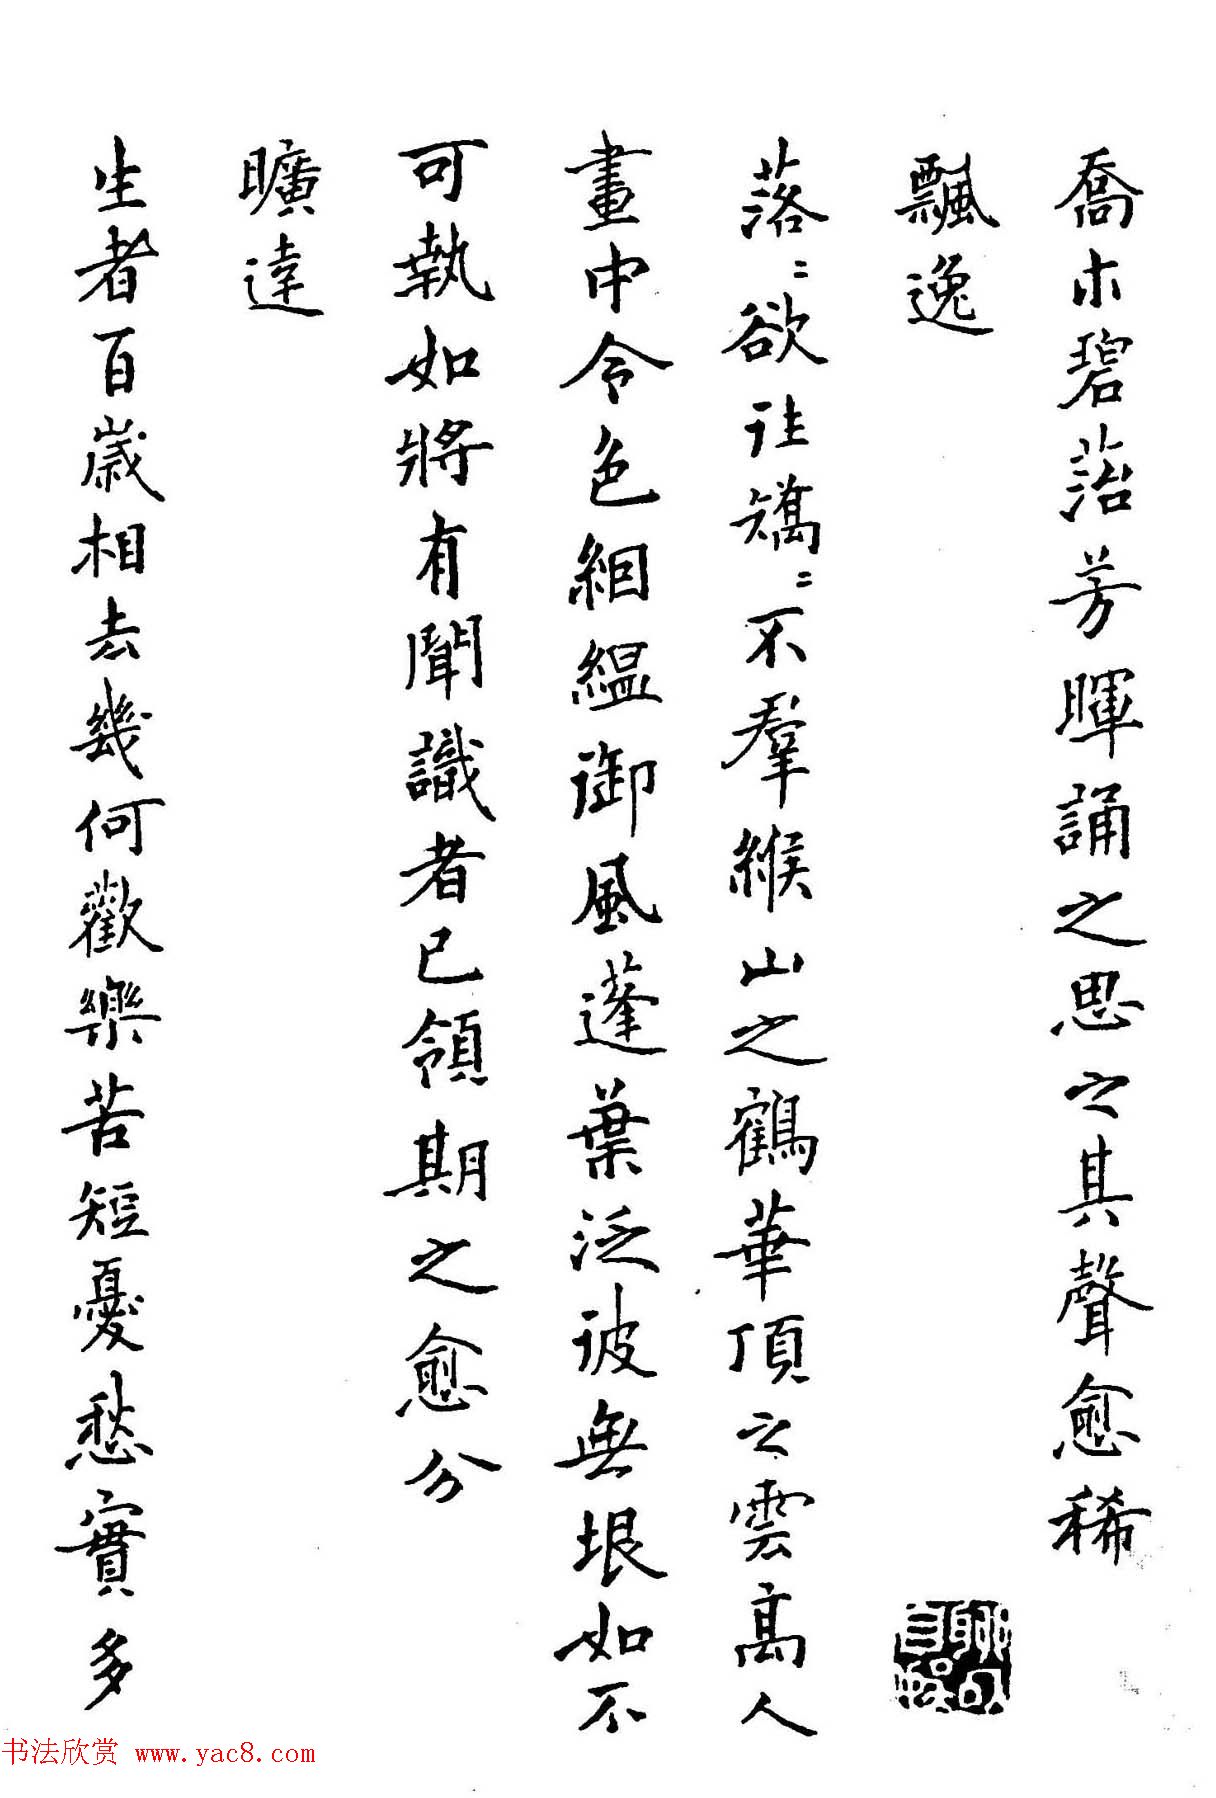 喬木碧落芳暉誦之思之其聲愈稀
飄逸
落〻欲往矯〻不羣緱山之鶴華頂之雲高人
畫中令色絪縕御風蓬葉泛彼無垠如不
可執如將有聞識者已領期之愈分
曠達
生者百歲相去幾何歡樂苦短憂愁實多
书法欣赏 www.yac8.com